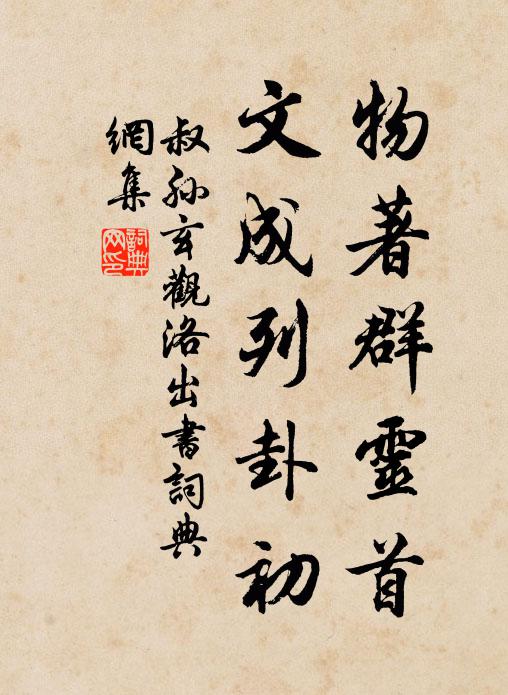 物著群靈首
文成列卦初
叔孫玄觀洛出書詞典
網集
詞典
網印